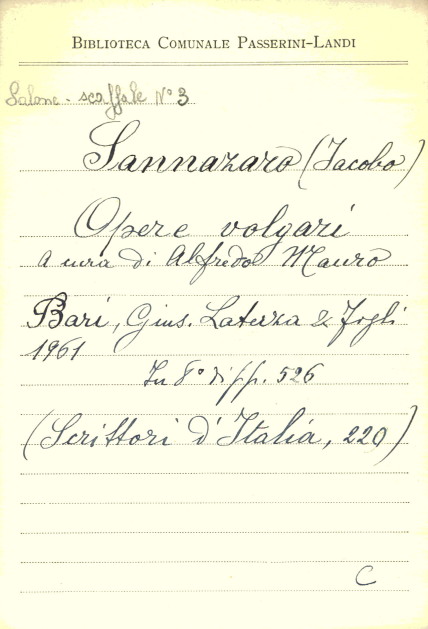 BIBLIOTECA COMUNALE PASSERINI-LANDI
Salone - scaffale N° 3
Sannazaro (Jacobo)
Opere volgari
A cura di Alfredo Mauro
Bari, Gius. Laterza & Figli
1961
In 8° di pp. 526
(Scrittori d'Italia, 220)
C